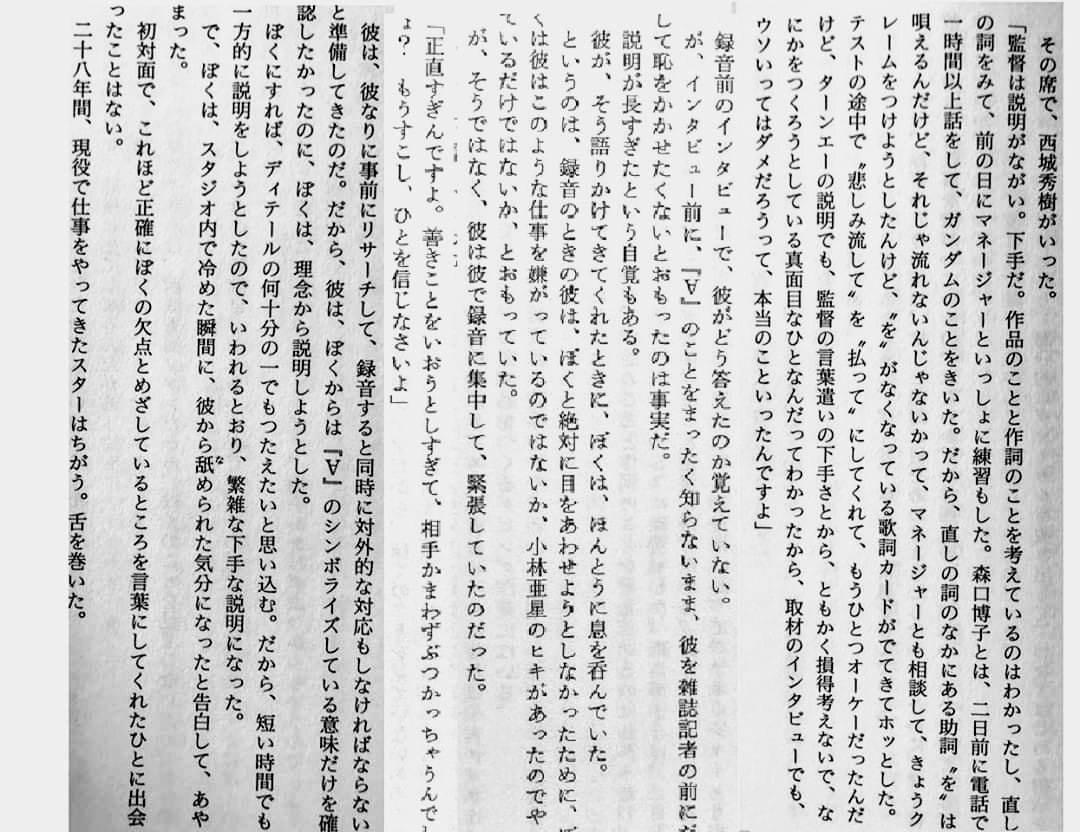 その席で、西城秀樹がいった。
「監督は説明がながい。下手だ。作品のことと作詞のことを考えているのはわかったし、直し
の詞をみて、前の日にマネージャーといっしょに練習もした。森口博子とは、二日前に電話で
一時間以上話をして、ガンダムのことをきいた。だから、直しの詞のなかにある助詞〝を〟は
唄えるんだけど、それじゃ流れないんじゃないかって、マネージャーとも相談して、きょうク
レームをつけようとしたんけど、〝を〟がなくなっている歌詞カードがでてきてホッとした。
テストの途中で〝悲しみ流して〟を〝払って〟にしてくれて、もうひとつオーケーだったんだ
けど、ターンエーの説明でも、監督の言葉遣いの下手さとから、ともかく損得考えないで、な
にかをつくろうとしている真面目なひとなんだってわかったから、取材のインタビューでも、
ウソいってはダメだろうって、本当のこといったんですよ」
録音前のインタビューで、彼がどう答えたのか覚えていない。
が、インタビュー前に、『∀』のことをまったく知らないまま、彼を雑誌記者の前にだ
して恥をかかせたくないとおもったのは事実だ。
説明が長すぎたという自覚もある。
彼が、そう語りかけてきてくれたときに、ぼくは、ほんとうに息を呑んでいた。
というのは、録音のときの彼は、ぼくと絶対に目をあわせようとしなかったために、ぼ
くは彼はこのような仕事を嫌がっているのではないか、小林亜星のヒキがあったのでや
ているだけではないか、とおもっていた。
が、そうではなく、彼は彼で録音に集中して、緊張していたのだった。
「正直すぎんですよ。善きことをいおうとしすぎて、相手かまわずぶつかっちゃうんで
ょ？　もうすこし、ひとを信じなさいよ」
彼は、彼なりに事前にリサーチして、録音すると同時に対外的な対応もしなければならない
と準備してきたのだ。だから、彼は、ぼくからは『∀』のシンボライズしている意味だけを確
認したかったのに、ぼくは、理念から説明しようとした。
ぼくにすれば、ディテールの何十分の一でもつたえたいと思い込む。だから、短い時間でも
一方的に説明をしようとしたので、いわれるとおり、繁雑な下手な説明になった。
で、ぼくは、スタジオ内で冷めた瞬間に、彼から舐められた気分になったと告白して、あや
まった。
初対面で、これほど正確にぼくの欠点とめざしているところを言葉にしてくれたひとに出会
ったことはない。
二十八年間、現役で仕事をやってきたスターはちがう。舌を巻いた。